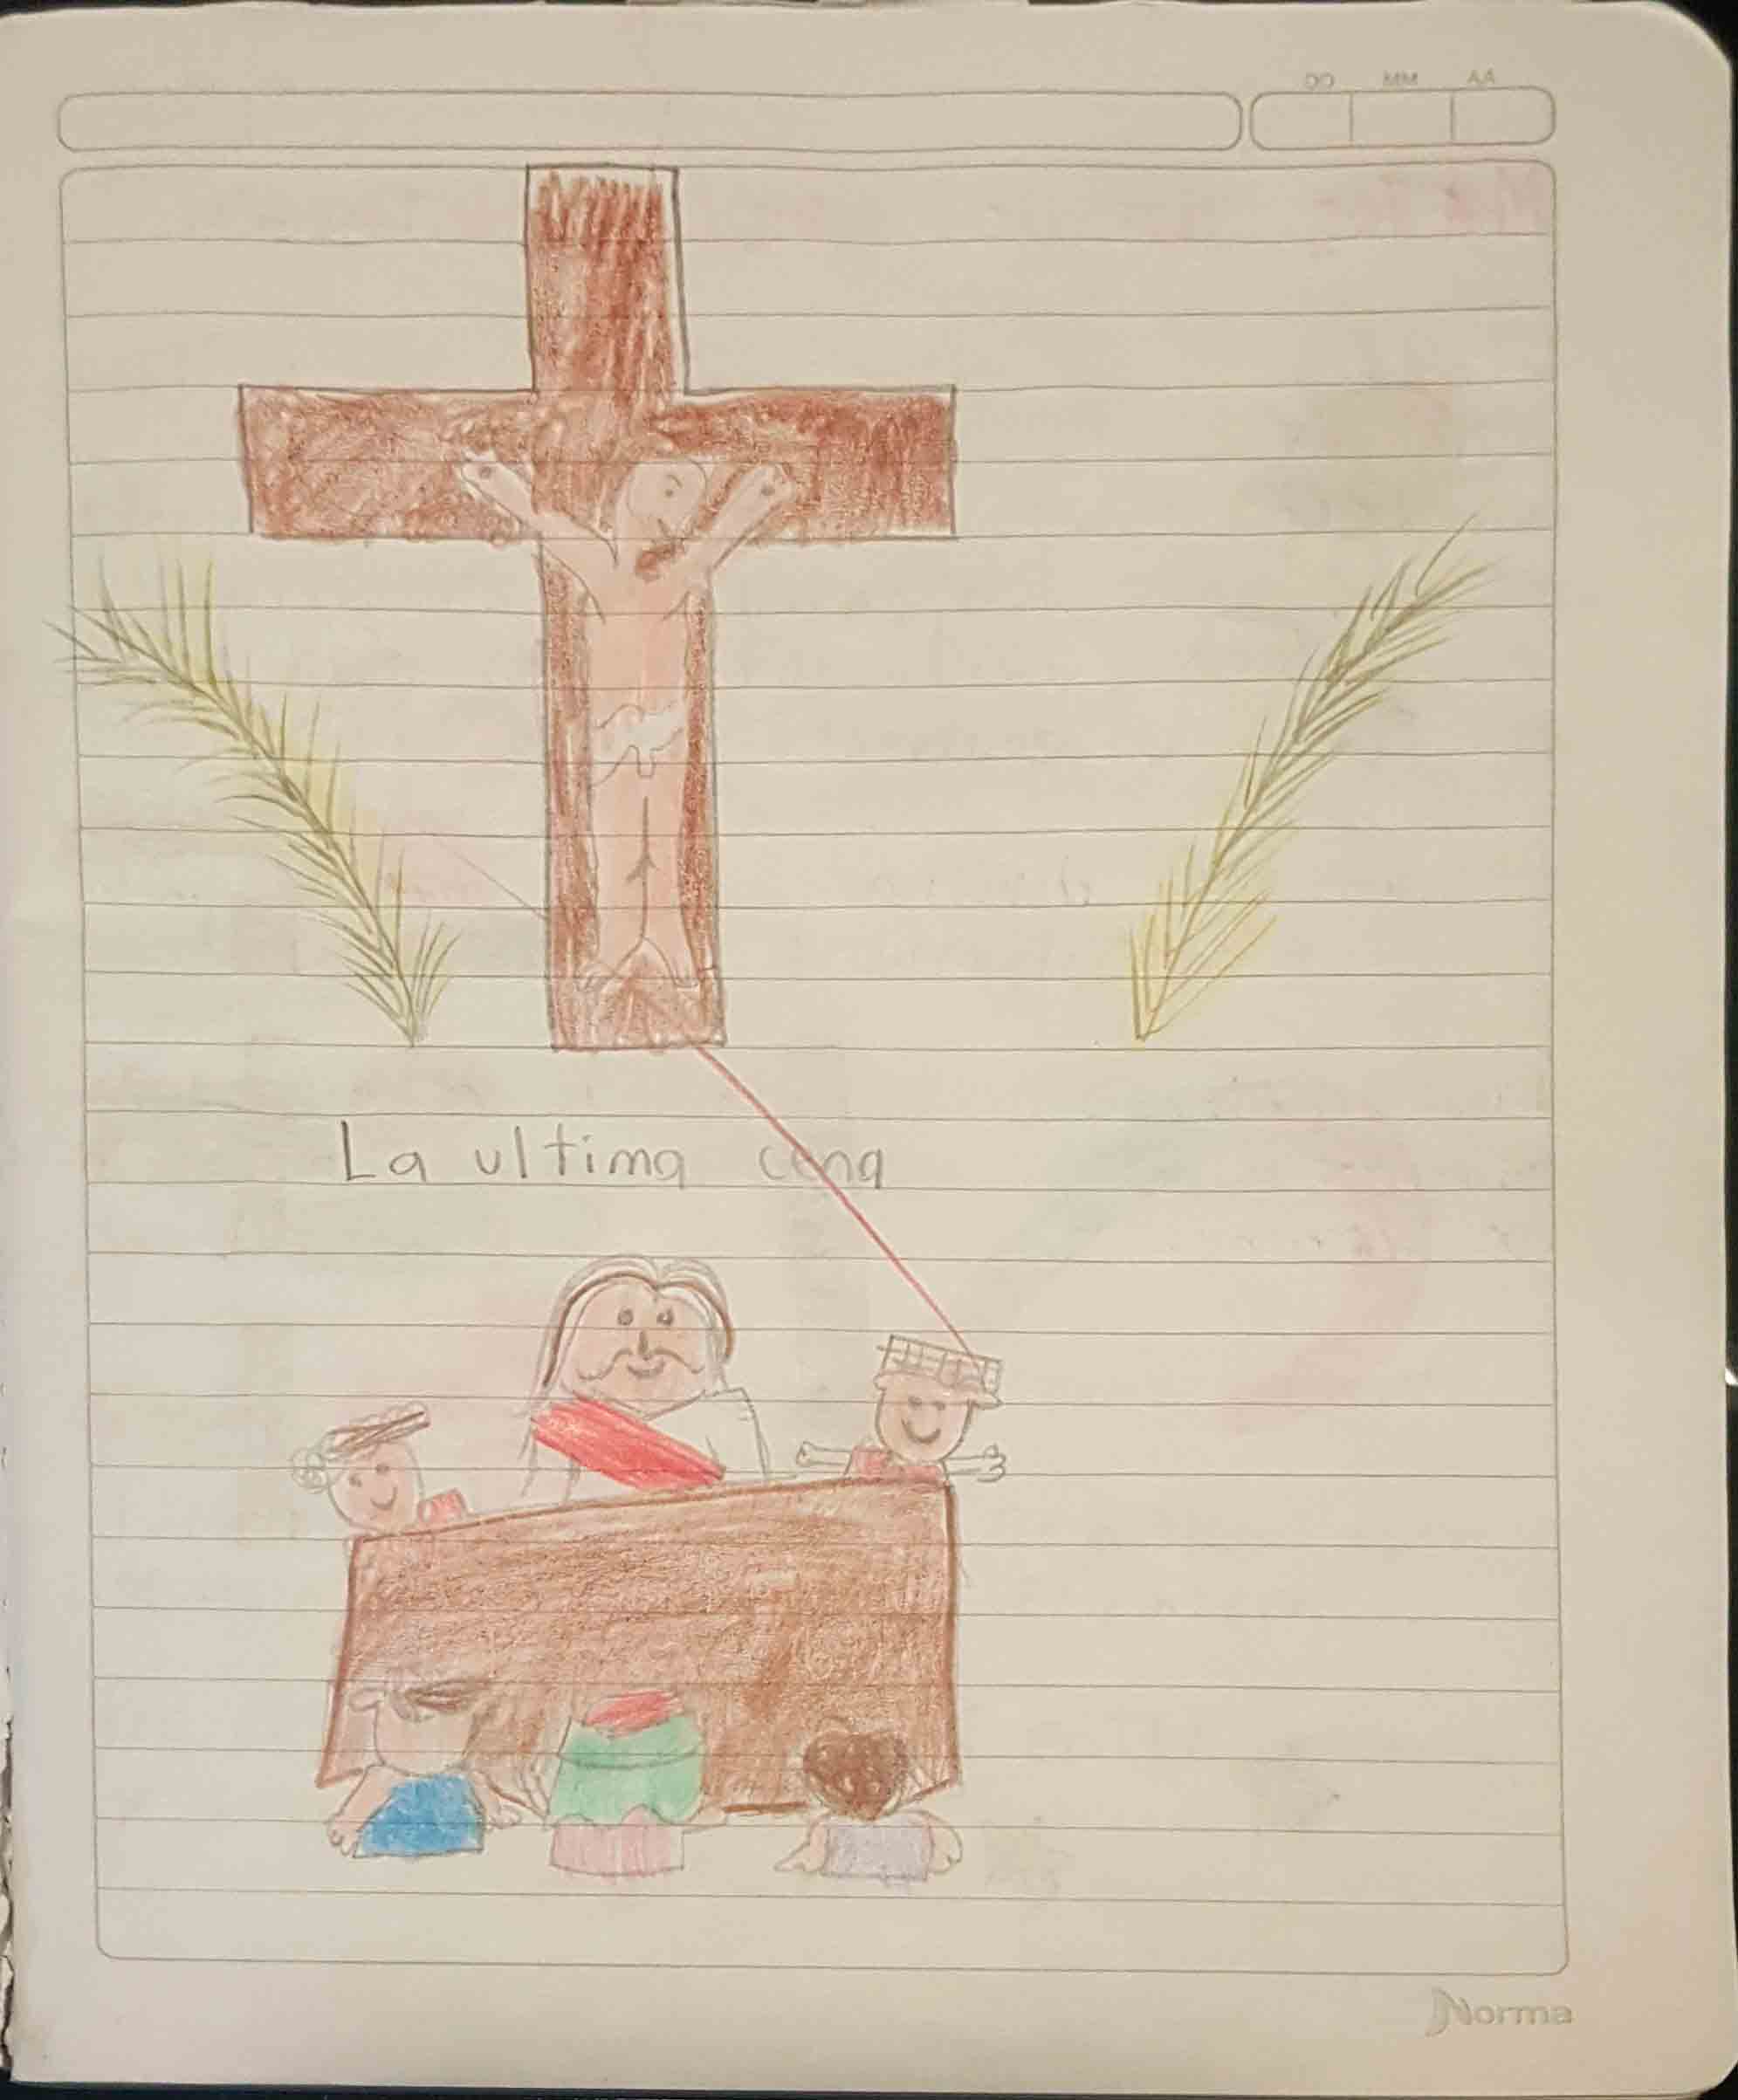 DD MM AA
La ultima cena
Norma